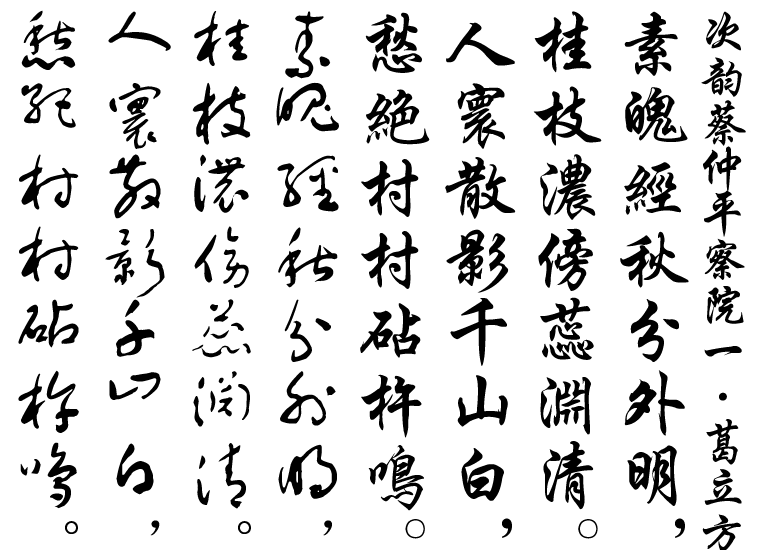 次韵蔡仲平察院一·葛立方
素魄經秋分外明，
桂枝濃傍蕊淵清。
人寰散影千山白，
愁絕村村砧杵鳴。
素魄經秋分外明，
桂枝濃傍蕊淵清。
人寰散影千山白，
愁絕村村砧杵鳴。